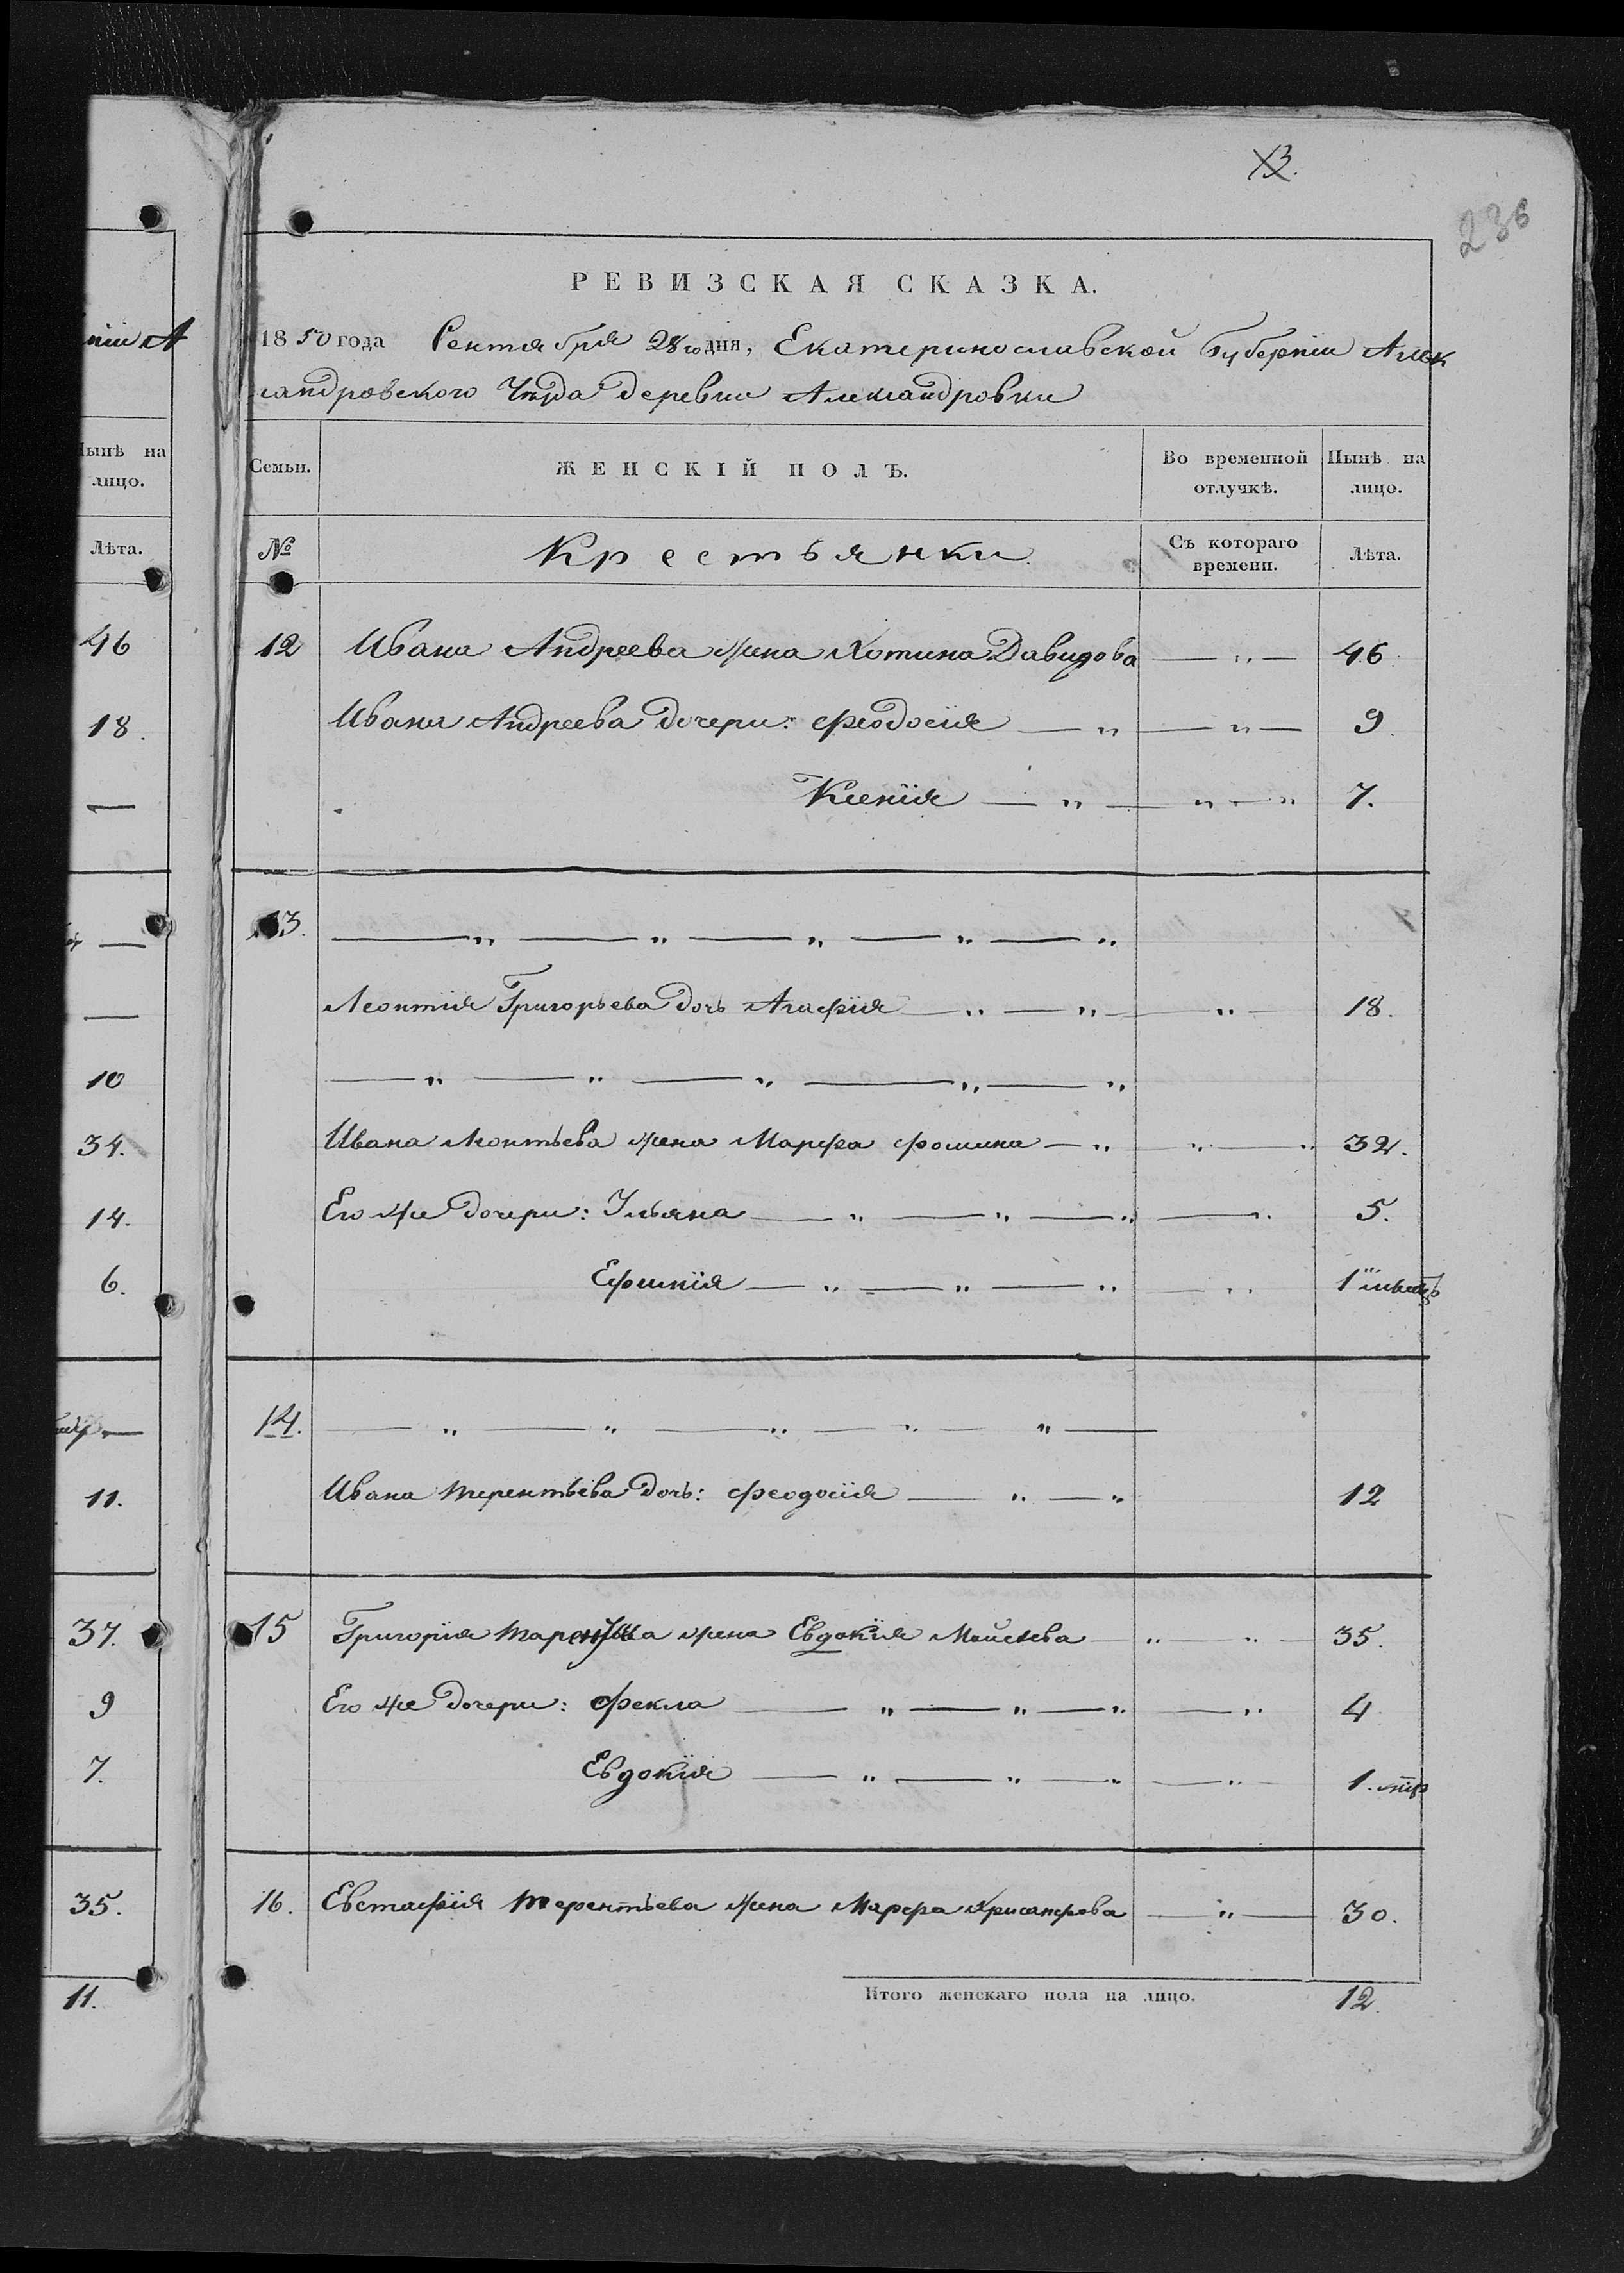 13.
236
РЕВИЗСКАЯ СКАЗКА.
1850 года Сентября 28го дня, Екатеринославской Губернии Алек
сандровского Уѣзда деревни Александровки
Семьи. ЖЕНСКІЙ ПОЛЪ. Во временной отлучкѣ. Нынѣ на лицо.
№ Крестьянки Съ котораго времени. Лѣта.
12 Ивана Андреева жена Хотина Давидова — " — 46
Ивана Андреева дочери: Феодосія — " — " — 9.
Ксенія — " — " — " 7.
13. — " — " — " — " — "
Леонтія Григорьева дочь Агафія — " — " — " — 18.
— " — " — " — " — "
Ивана Леонтьева жена Марфа Фомина — " — " — " 32.
Его же дочери: Ульяна — " — " — " — " 5.
— " — " — " — " 1
14. — " — " — " — " — " —
Ивана Терентьева дочь: Феодосія — " — " 12
15 Григорія жена Евдокія Мойсеева — " — " — 35.
Его же дочери: Фекла — " — " — " — " 4
Евдокія — " — " — " — " — 1.
16. Евстафія Терентьева жена Марфа Хрисанфова — " — 30.
Итого женскаго пола на лицо. 12.
ніи А
Нынѣ на
лицо.
Лѣта.
46
18.
—
—
—
10
34.
14.
6.
—
11.
37.
9
7.
35.
11.